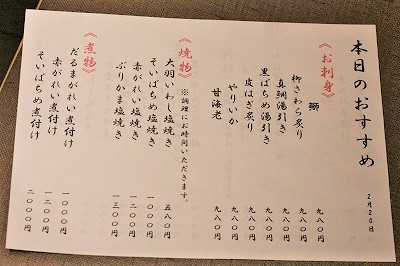 本日のおすすめ
2月26日
《お刺身》
鰤 九八〇円
柳さわら炙り 九八〇円
真鯛湯引き 九八〇円
黒ばちめ湯引き 九八〇円
皮はぎ炙り 九八〇円
やりいか 九八〇円
甘海老 九八〇円
《焼物》 ※調理にお時間いただきます。
大羽いわし塩焼き 五八〇円
そいばちめ塩焼き 一〇〇〇円
赤がれい塩焼き 一二〇〇円
ぶりかま塩焼き 一三〇〇円
《煮物》
だるまがれい煮付け 一〇〇〇円
赤がれい煮付け 一二〇〇円
そいばちめ煮付け 二〇〇〇円